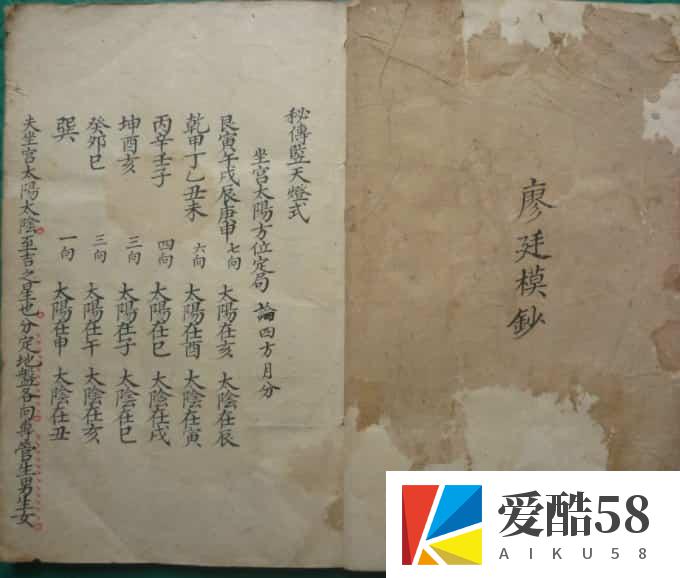 廖廷模鈔
秘傳竪天燈式
坐宮太陽方位定局 論四方月分
艮寅午戌辰庚申 七向 太陽在亥 太陰在辰
乾甲丁乙丑未 六向 太陽在酉 太陰在寅
丙辛壬子 四向 太陽在巳 太陰在戌
坤酉亥 三向 太陽在子 太陰在巳
癸夘巳 三向 太陽在午 太陰在亥
巽 一向 太陽在申 太陰在丑
夫坐宮太陽太陰至吉之星也分定地盤各向專管生男生女
爱酷58
AIKU58